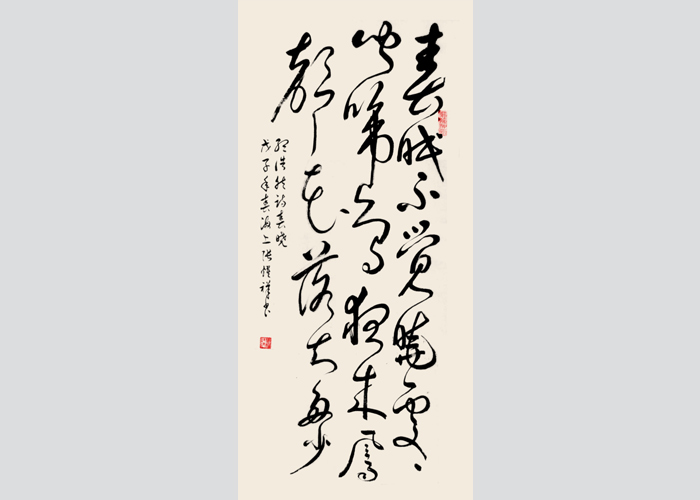 春眠不觉晓处々
闻啼鸟夜来风
声花落知多少
孟浩然诗春晓
戊子年春海上张恺祥书